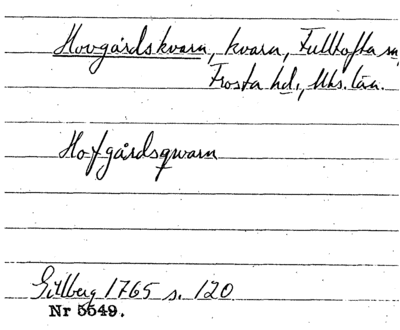 Hovgårdskvarn, kvarn, Fulltofta sn,
Frosta hd., Mhs. län.
Hofgårdsqwarn
Gillberg 1765 s. 120
Nr 5549.